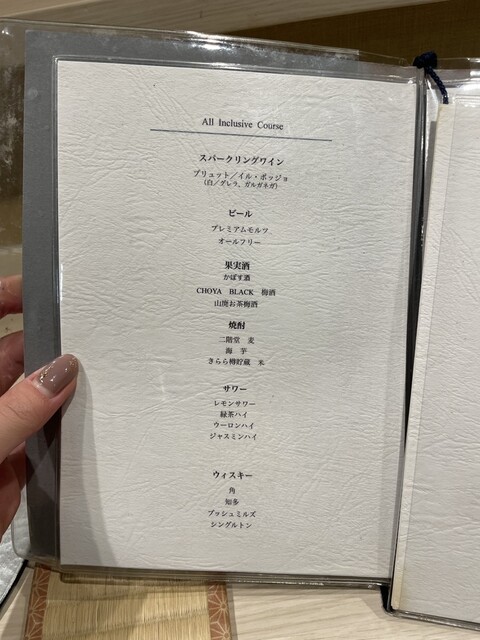 All Inclusive Course
スパークリングワイン
ブリュット／イル・ポッジョ
（白／グレラ、ガルガネガ）
ビール
プレミアムモルツ
オールフリー
果実酒
かぼす酒
CHOYA BLACK 梅酒
山廃お茶梅酒
焼酎
二階堂 麦
海 芋
きらら樽貯蔵 米
サワー
レモンサワー
緑茶ハイ
ウーロンハイ
ジャスミンハイ
ウィスキー
角
知多
ブッシュミルズ
シングルトン